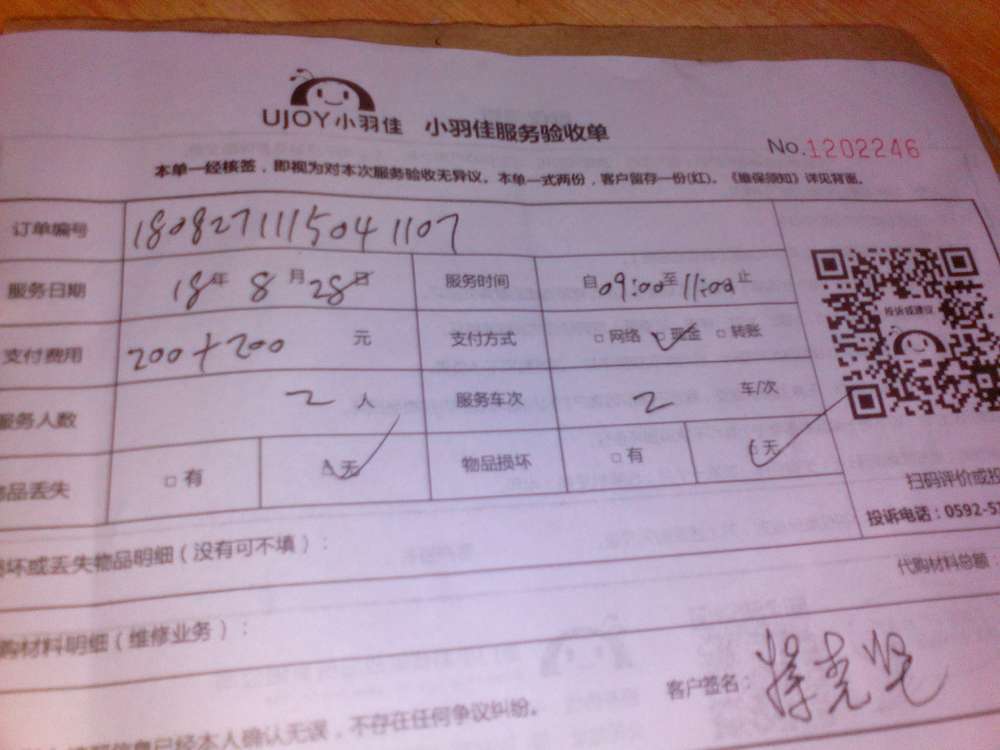 UJOY小羽佳 小羽佳服务验收单
No.1202246
本单一经核签，即视为对本次服务验收无异议。本单一式两份，客户留存一份(红)。《维保须知》详见背面。
订单编号 180827111504 1107
服务日期 18年 8月 28日 服务时间 自09:00至11:00止
支付费用 200+200 元 支付方式 □网络 □现金 □转账
服务人数 2 人 服务车次 2 车/次
品丢失 □有 □无 物品损坏 □有 □无
投诉或建议
扫码评价或投
投诉电话：0592-5
坏或丢失物品明细（没有可不填）：
代购材料总额：
购材料明细（维修业务）：
客户签名：
信息已经本人确认无误，不存在任何争议纠纷。